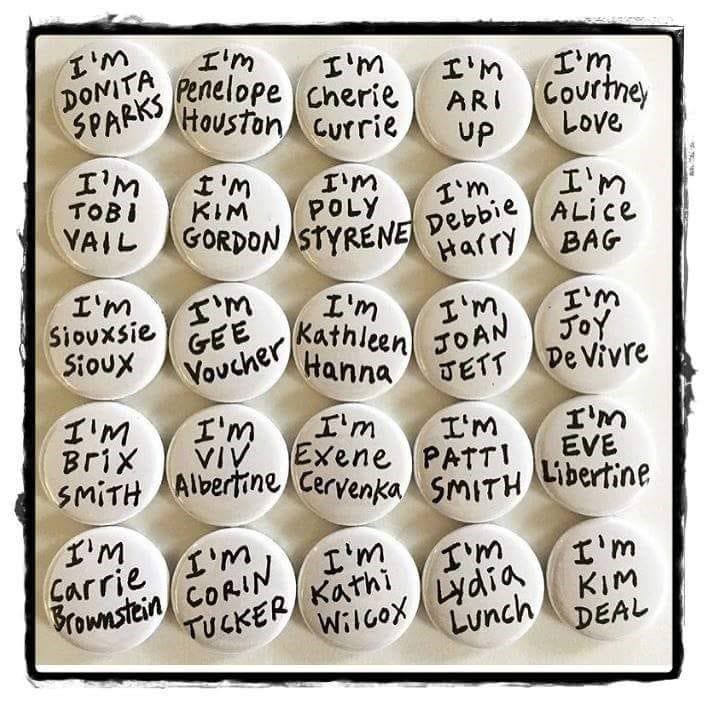 I'm
DONITA
SPARKS
I'm
Penelope
Houston
I'm
Cherie
Currie
I'm
ARI
UP
I'm
Courtney
Love
I'M
TOBI
VAIL
I'm
KIM
GORDON
I'm
POLY
STYRENE
I'm
Debbie
Harry
I'm
ALICE
BAG
I'm
Siouxsie
Sioux
I'm
GEE
Voucher
I'm
Kathleen
Hanna
I'm
JOAN
JETT
I'm
JOY
De Vivre
I'M
Brix
SMITH
I'm
VIV
Albertine
I'm
Exene
Cervenka
I'm
PATTI
SMITH
I'm
EVE
Libertine
I'M
Carrie
Brownstein
I'm
CORIN
TUCKER
I'm
Kathi
Wilcox
I'm
Lydia
Lunch
I'm
KIM
DEAL